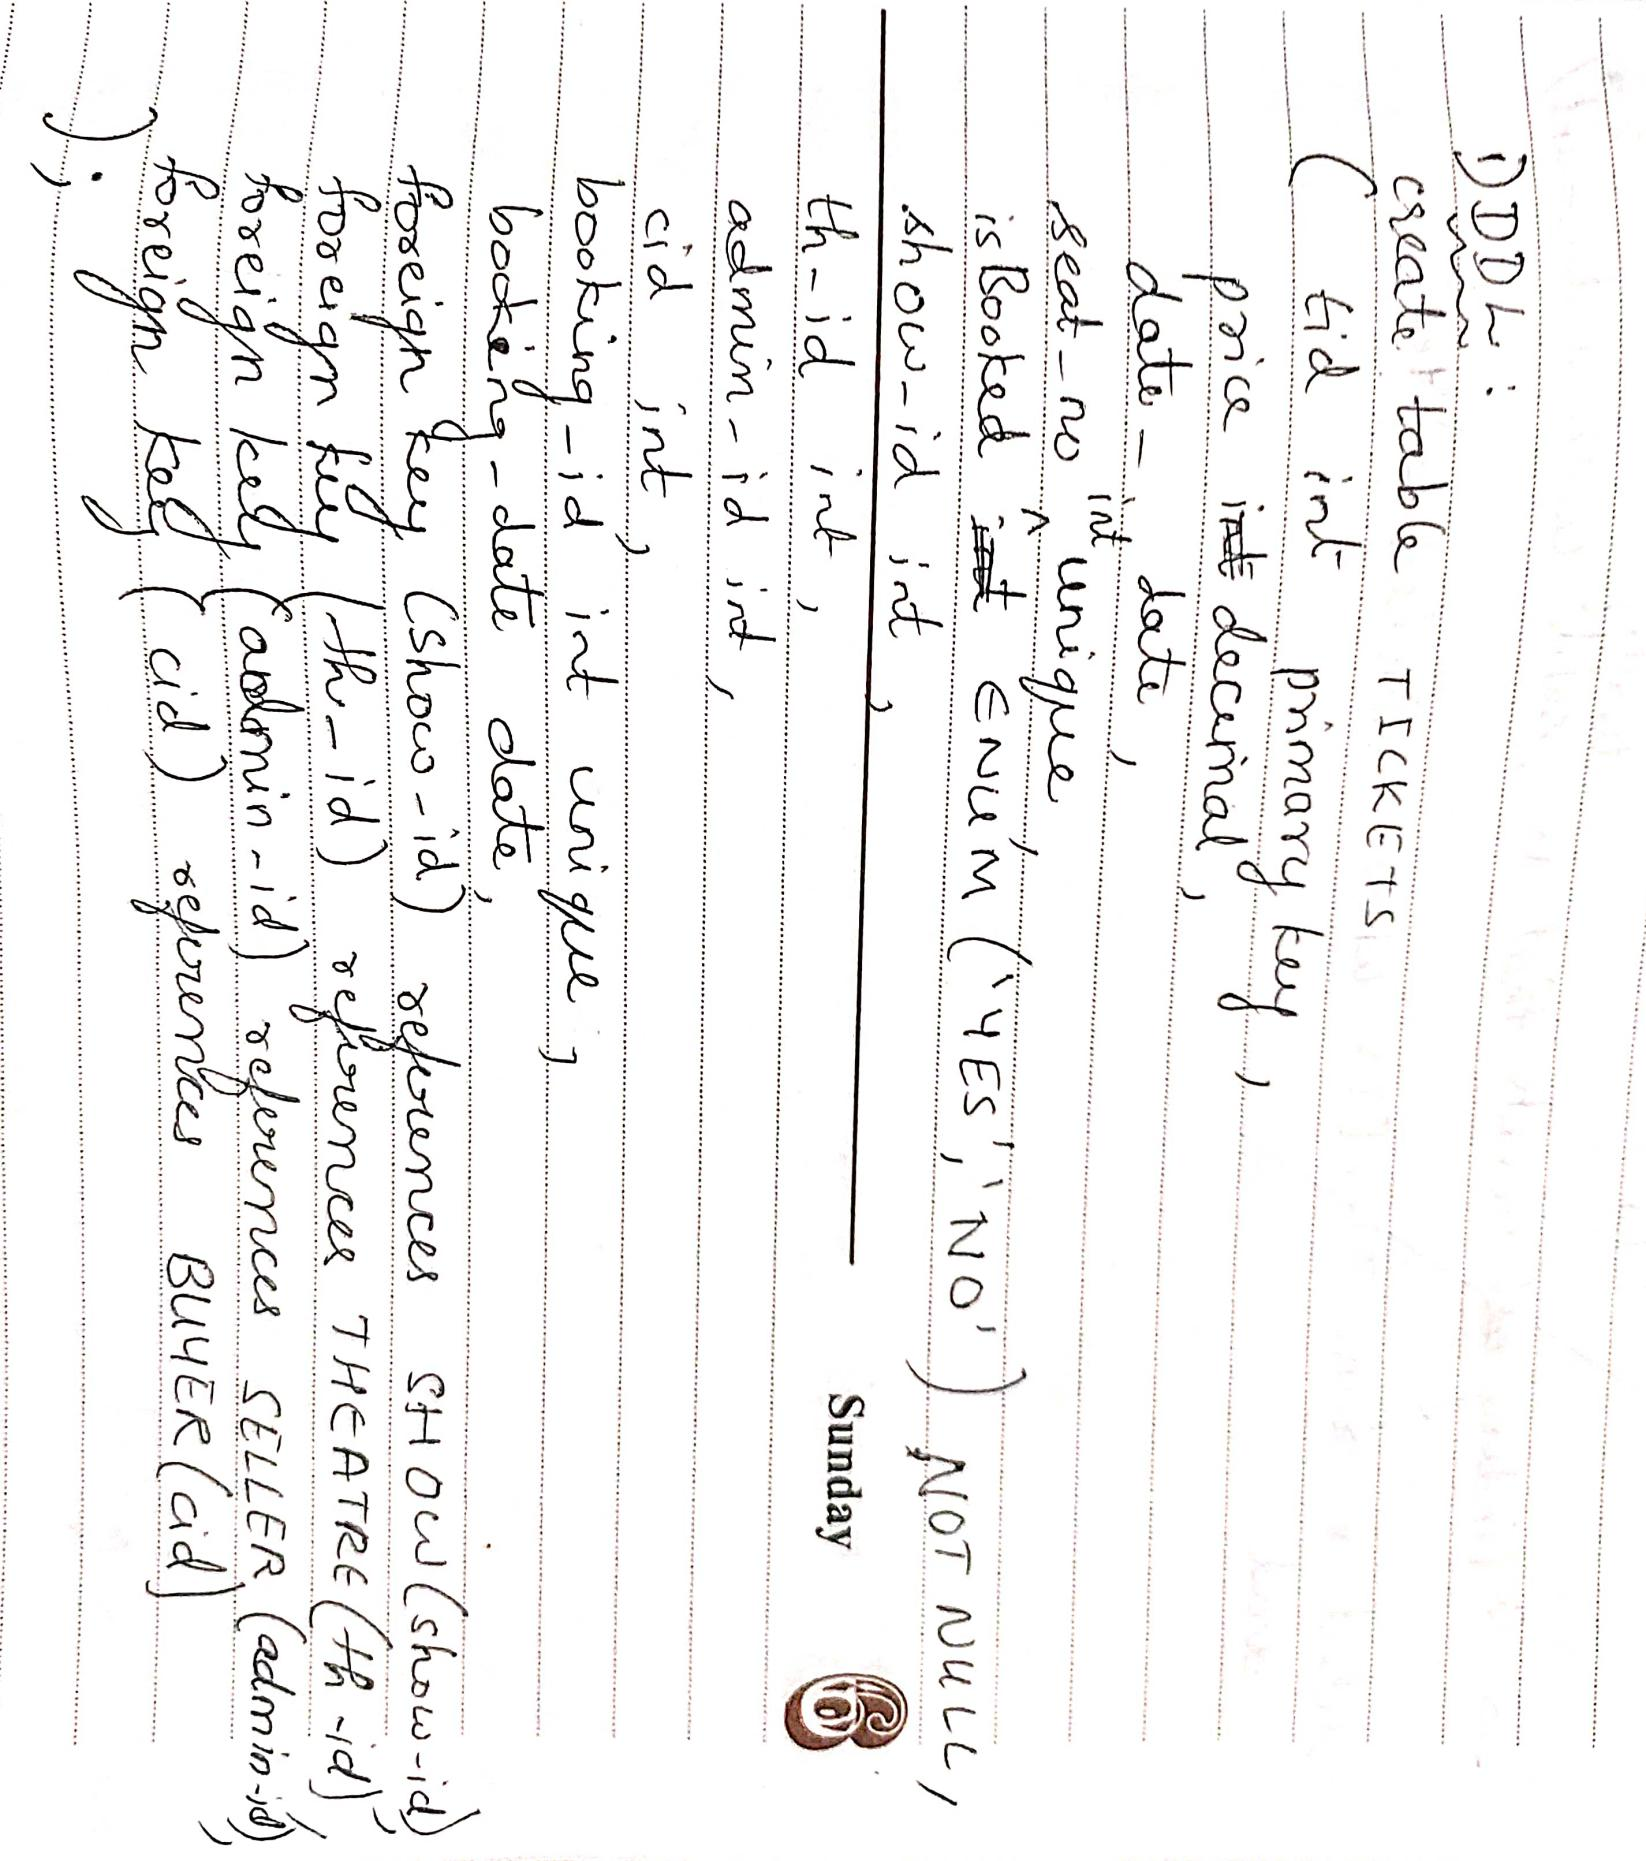 1) DDL :
create table TICKETS
( tid int primary key,
price decimal,
date- date,
seat-no int unique,
isBooked ENUM ('YES', 'NO') NOT NULL,
show-id int,
Sunday 6
th-id int,
admin-id int,
cid int,
booking-id int unique,
booking-date date,
foreign key (show-id) references SHOW(show-id),
foreign key (th-id) references THEATRE(th-id),
foreign key (admin-id) references SELLER (admin-id),
foreign key (cid) references BUYER(cid)
);